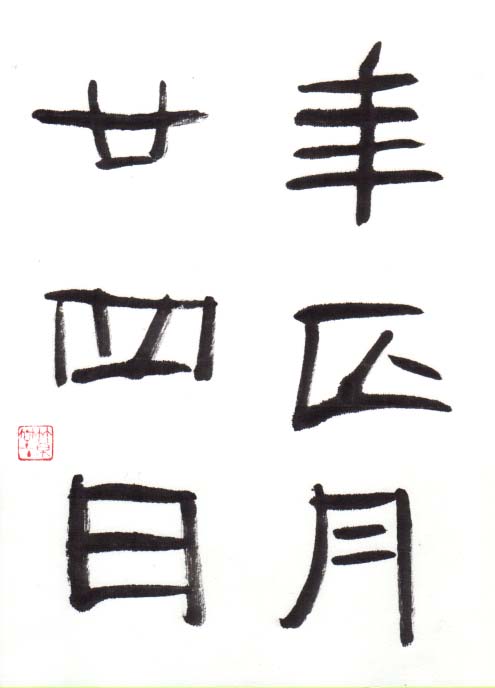 年正月
廿四日